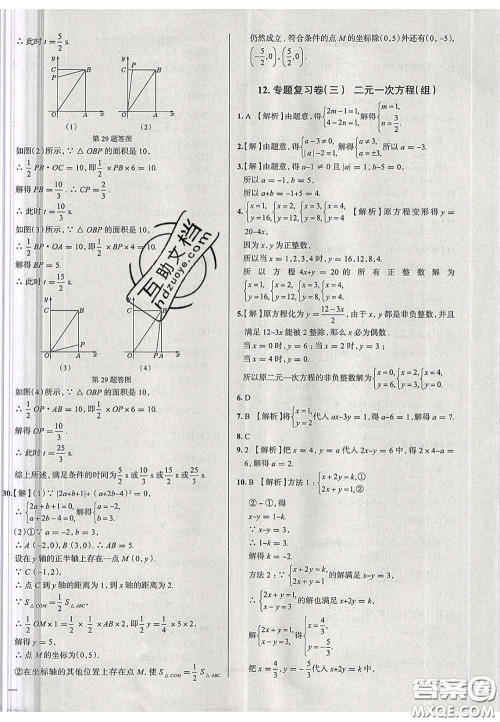 ∴ 此时 t = 5/2 s.
（1） （2）
第29题答图
如图(2)所示, ∵ △OBP 的面积是10,
∴ 1/2 PB·OC = 10, 即 1/2 ×PB×6 = 10.
解得 BP = 10/3. ∴ CP = 2/3.
∴ 此时 t = 10/3 s.
如图(3)所示, ∵ △OBP 的面积是10,
∴ 1/2 BP·OA = 10, 即 1/2 ×BP×4 = 10.
解得 BP = 5.
∴ 此时 t = 15/2 s.
（3） （4）
第29题答图
如图(4)所示, ∵ △OBP 的面积是10,
∴ 1/2 OP·AB = 10, 即 1/2 ×OP×6 = 10.
解得 OP = 10/3.
∴ 此时 t = 25/3 s.
综上所述,满足条件的时间为 5/2 s 或 10/3 s 或 15/2 s 或 25/3 s.
30.【解】(1) ∵ |2a+b+1|+(a+2b-4)² = 0,
∴ {2a+b+1=0, a+2b-4=0. 解得 {a=-2, b=3.
(2)①∵ A(-2,0), B(3,0), ∴ AB=5.
设在 y 轴的正半轴上存在一点 M(0,y).
∵ C(-1,2),
∴ 点 C 到 x 轴的距离为2, 到 y 轴的距离为1.
∵ S△COM = 1/2 S△ABC,
∴ 1/2 ·y×1 = 1/2 × 1/2 ·AB×2, 即 1/2 y = 1/4 ×5×2,
解得 y=5.
∴ 点 M 的坐标为(0,5).
②在坐标轴的其他位置上存在点 M, 使 S△COM = 1/2 S△ABC
仍然成立. 符合条件的点 M 的坐标除(0,5)外还有(0,-5),
(-5/2,0), (5/2,0).
12. 专题复习卷(三) 二元一次方程(组)
1. A 【解析】由题意,得 {2m-1=1, 4-2n=1. 解得 {m=1, n=3/2.
2. D 【解析】由题意,得 {a-3≠0, |a|-2=1. 解得 a=-3.
3.【解】由题意,得 a-1≠0 且 |a|=1, b-5=0,
所以 a=-1, b=5.
所以 a+b=-1+5=4.
4. {x=1, y=16, {x=2, y=12, {x=3, y=8, {x=4, y=4 【解析】原方程变形得 y=
20-4x.
因为 x, y 为正整数,
所以当 x=1,2,3,4 时, y=16,12,8,4.
所以方程 4x+y=20 的所有正整数解为
{x=1, y=16, {x=2, y=12, {x=3, y=8, {x=4, y=4.
5.【解】原方程化为 y=(12-3x)/2, 由于 x, y 都是非负整数,并且
满足 12-3x 能被 2 整除,那么 x 必为偶数.
当 x=0 时, y=6; 当 x=2 时, y=3;
当 x=4 时, y=0.
所以原二元一次方程的非负整数解为 {x=0, y=6, {x=2, y=3, {x=4, y=0.
6. D
7. B 【解析】将 {x=1, 代入 ax-3y=1, 得 a-6=1,
解得 a=7.
8. D
9. 2 【解析】把 x=4, y=a 代入 2x-4=ya, 得 2×4-
6=a.
解得 a=2.
10. B 【解析】方法1: {x+2y=k,① 2x+y=1,②
②-①,得
x-y=1-k.
∵ x-y=3, ∴ 1-k=3.
解得 k=-2.
方法2: ∵ {x+2y=k, 2x+y=1 的解满足 x-y=3,
∴ {2x+y=1, x-y=3 的解满足 x+2y=k.
解 {2x+y=1, x-y=3, 得 {x=4/3, y=-5/3.
把 {x=4/3, y=-5/3 代入 x+2y=k, 得
互助文档
hdzuoye.com
答案圈
MXQE.COM